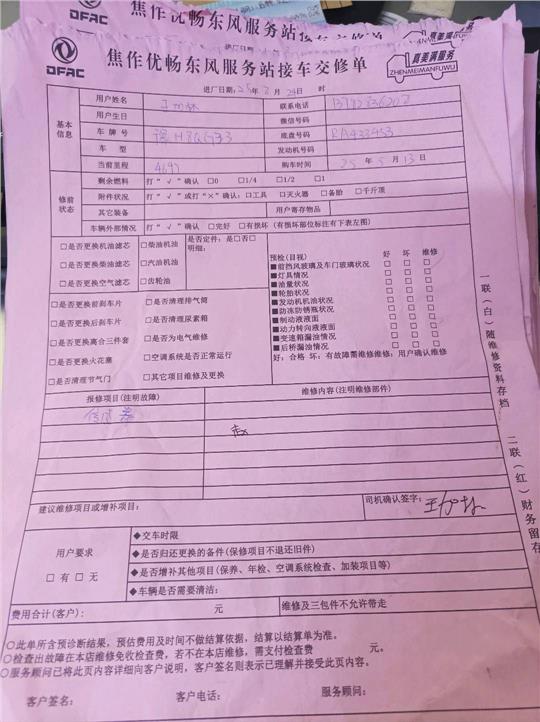 焦作优畅东风服务站接车交修单
DFAC
焦作优畅东风服务站接车交修单
DFAC
真美满服务
ZHENMEIMANFUWU
进厂日期: 25 年 8 月 24 日 时
基本信息
用户姓名 联系电话
用户生日 微信号码
车牌号 豫H 底盘号码 RA433453
车型 发动机号码
当前里程 购车时间 25 年 5 月 13 日
修前状态
剩余燃料 打“√”确认 □0 □1/4 □1/2 □1
附件状况 打“√”或打“×”确认: □工具 □灭火器 □备胎 □千斤顶
其它装备 用户寄存物品
车辆外部情况 打“√”确认 □完好 □有损坏 (有损坏部位标注有下表左图)
□是否更换机油滤芯 □柴油机油 是否定件: 是□否□
明细:
□是否更换柴油滤芯 □汽油机油
□是否更换空气滤芯 □齿轮油
□是否更换前刹车片 □是否清理排气筒
□是否更换后刹车片 □是否清理尿素箱
□是否更换离合三件套 □是否为电气维修
□是否更换火花塞 □空调系统是否正常运行
□是否清理节气门 □其它项目维修及更换
预检(目视) 好 坏 维修
■前挡风玻璃及车门玻璃状况 □ □ □
■灯具情况 □ □ □
■油量状况 □ □ □
■轮胎状况 □ □ □
■发动机机油状况 □ □ □
■防冻防锈瓶状况 □ □ □
■制动液液面 □ □ □
■动力转向液液面 □ □ □
■变速箱漏油情况 □ □ □
■后桥漏油情况 □ □ □
好: 合格 坏: 有故障需维修维修: 用户确认维修
报修项目(注明故障) 维修内容(注明维修部件)
建议维修项目或增补项目: 司机确认签字:
用户要求
□有 □无
◆交车时限
◆是否归还更换的备件(保修项目不退还旧件)
◆是否增补其他项目(保养、年检、空调系统检查、加装项目等)
◆车辆是否需要清洁:
费用合计(客户): 元 维修及三包件不允许带走
○此单所含预诊断结果,预估费用及时间不做结算依据,结算以结算单为准。
○检查出故障在本店维修免收检查费,若不在本店维修,需支付检查费 元。
○服务顾问已将此页内容详细向客户说明,客户签名则表示已理解并接受此页内容。
客户签名: 客户电话: 服务顾问:
一联(白)随维修资料存档
二联(红)财务留存